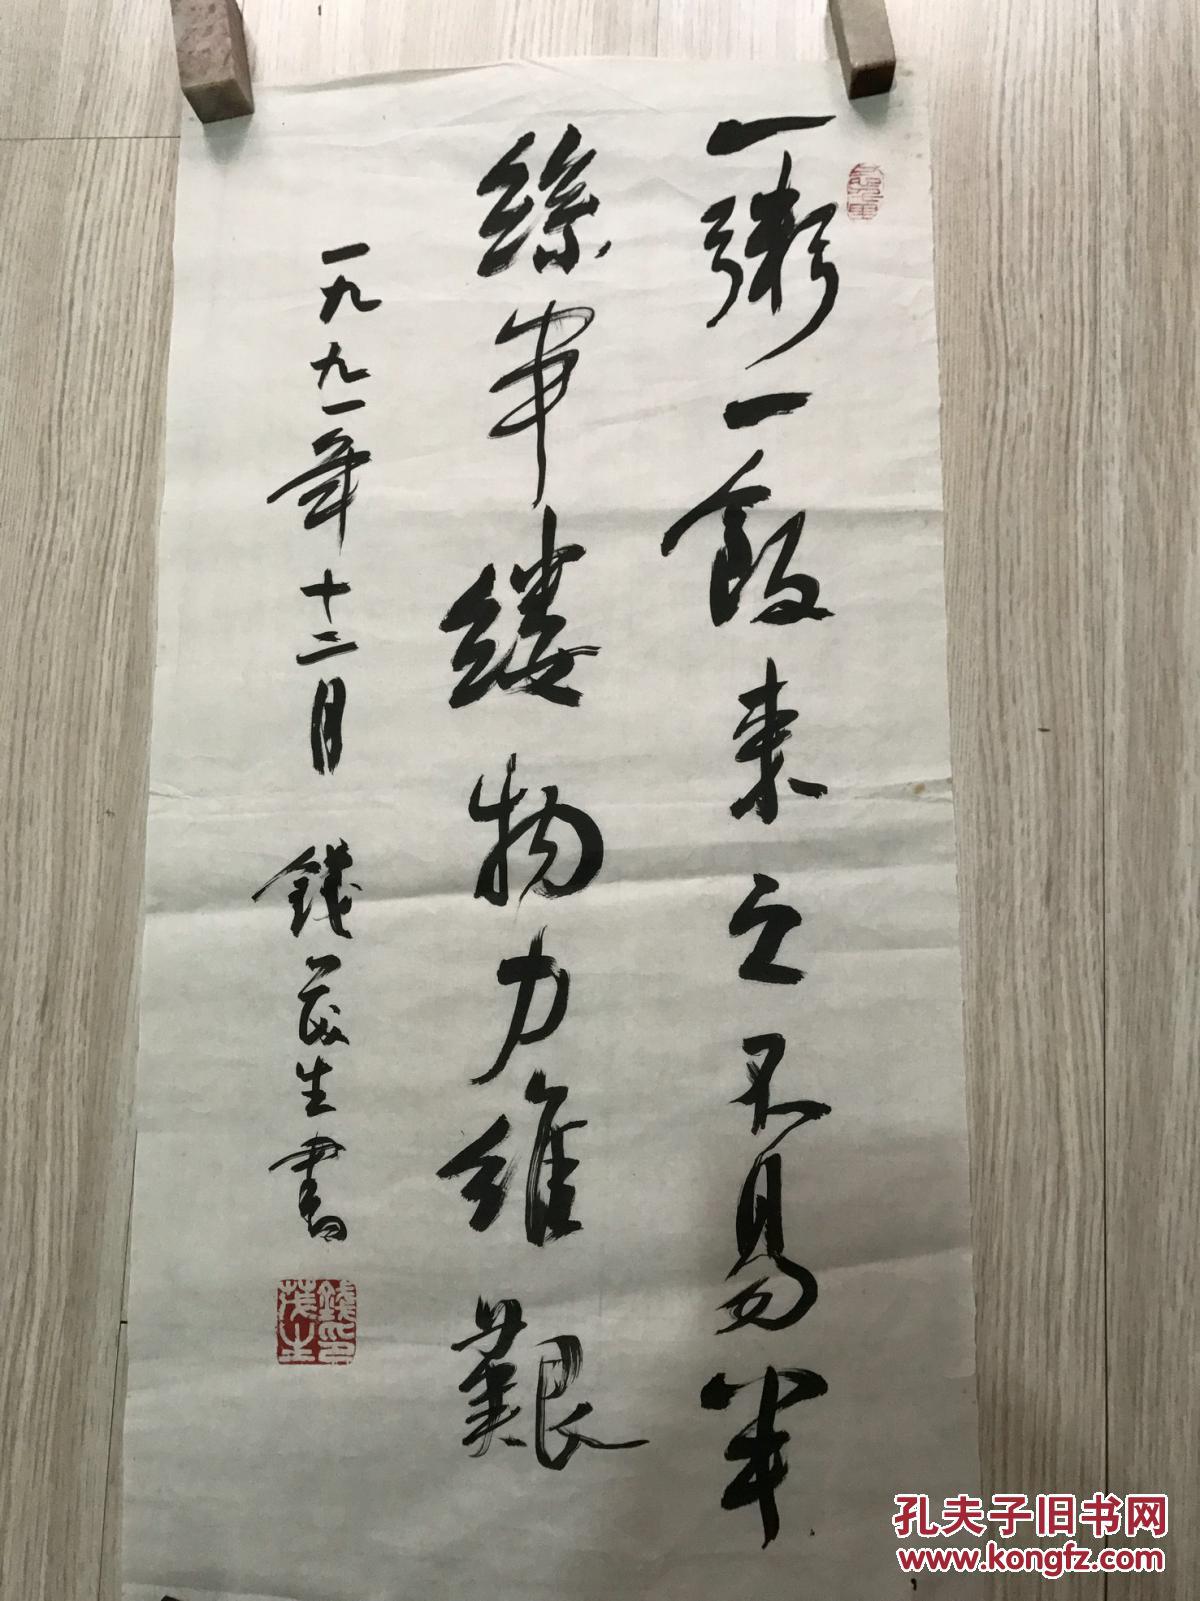 一粥一飯來之不易半
絲半縷物力維艱
一九九一年十二月 錢茂生書
錢茂生印
孔夫子旧书网
www.kongfz.com